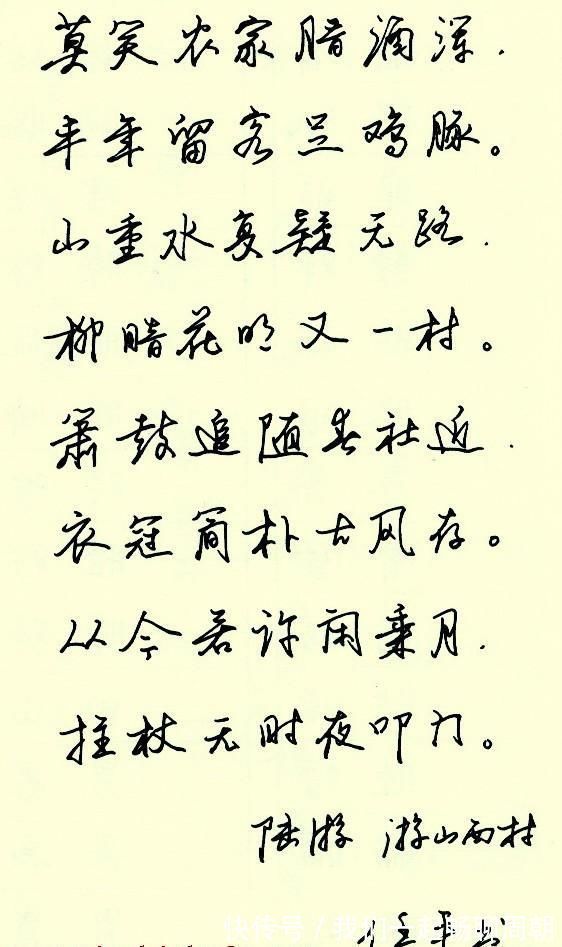 莫笑农家腊酒浑，
丰年留客足鸡豚。
山重水复疑无路，
柳暗花明又一村。
箫鼓追随春社近，
衣冠简朴古风存。
从今若许闲乘月，
拄杖无时夜叩门。
陆游 游山西村
快传号 / 我们一起畅聊周朝